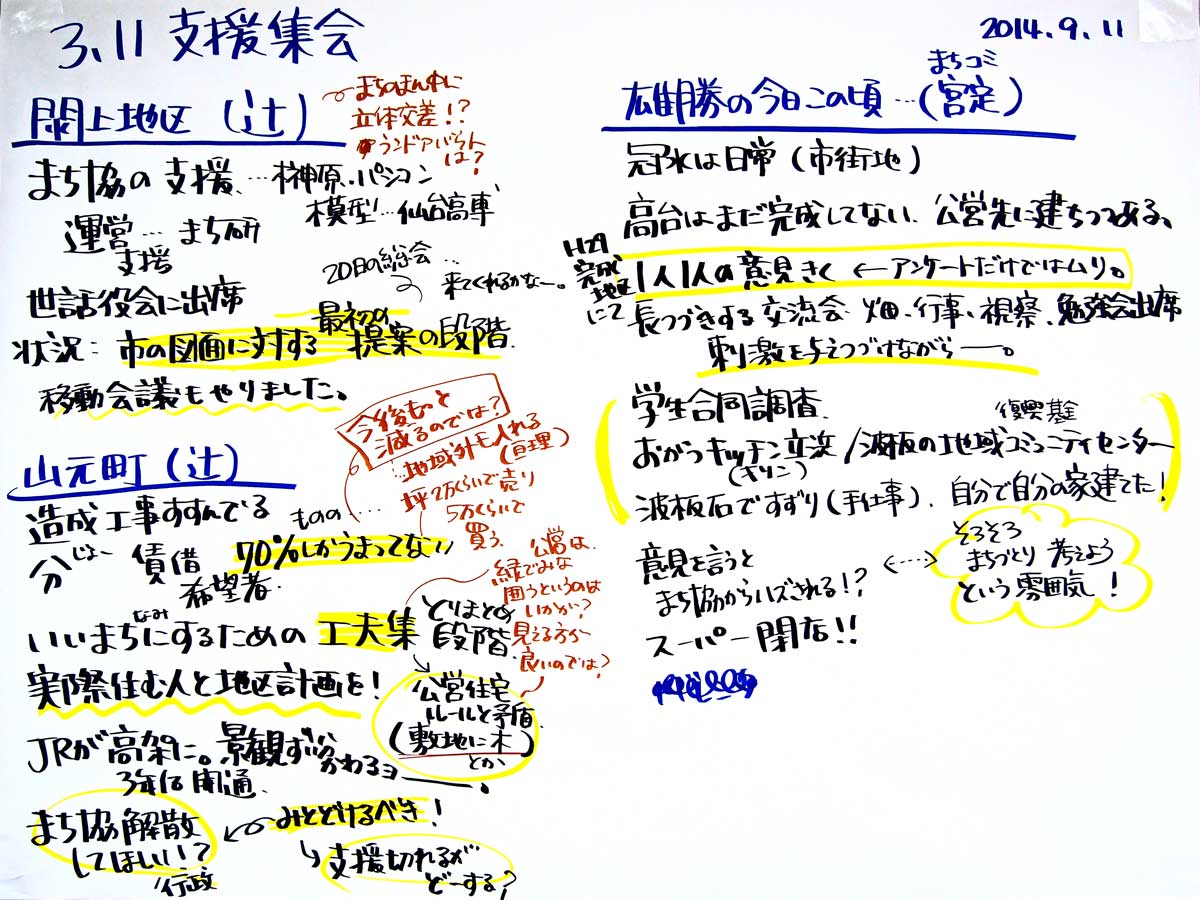 3.11 支援集会
2014.9.11
閖上地区（辻）
まちのまん中に
立体交差!?
ラウンドアバウト
は?
まち協の支援…榊原.パシコン
模型…仙台高専
運営…まち研
支援
20日の総会…
来てくれるかなー。
世話役会に出席
状況：市の図面に対する最初の提案の段階.
移動会議もやりました。
山元町（辻）
造成工事すすんでる
ものの…
今後もっと
減るのでは?
地域外も入れる
(亘理)
坪2万くらいで売り
5万くらいで
買う.
分じょー 賃借 70%しかうまってない
希望者.
いいまちなみにするための 工夫集 とりまとめ
段階.
公営は.
縁でみな
囲うというのは
いかが?
見える方が
良いのでは?
実際住む人と地区計画を!
公営住宅
ルールと矛盾.
(敷地に木)
とか
JRが高架に。景観ずい分かわるヨー.
3年後開通.
まち協解散 ← みとどけるべき!
してほしい?
行政
↳ 支援切れるが
どーする?
雄勝の今日この頃…(宮定)
まちコミ
冠水は日常（市街地）
高台はまだ完成してない、公営先に建ちつつある、
H29
完成
地区
にて
1人1人の意見きく ←アンケートだけではムリ。
長つづきする交流会、畑、行事、視察、勉強会出席
刺激を与えつづけながらー。
学生合同調査.
復興基
おがつキッチン立浜/波板の地域コミュニティセンター
(キリン)
波板石ですずり(手仕事). 自分で自分の家建てた!
意見を言うと
まち協からハズされる!?
そろそろ
まちづくり 考えよう
という雰囲気!
スーパー閉店!!